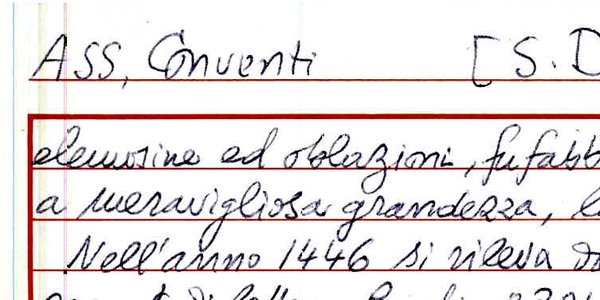 ASS, Conventi [S. D
elemosine ed oblazioni, fu fabb
a meravigliosa grandezza, l
Nell'anno 1446 si rileva da